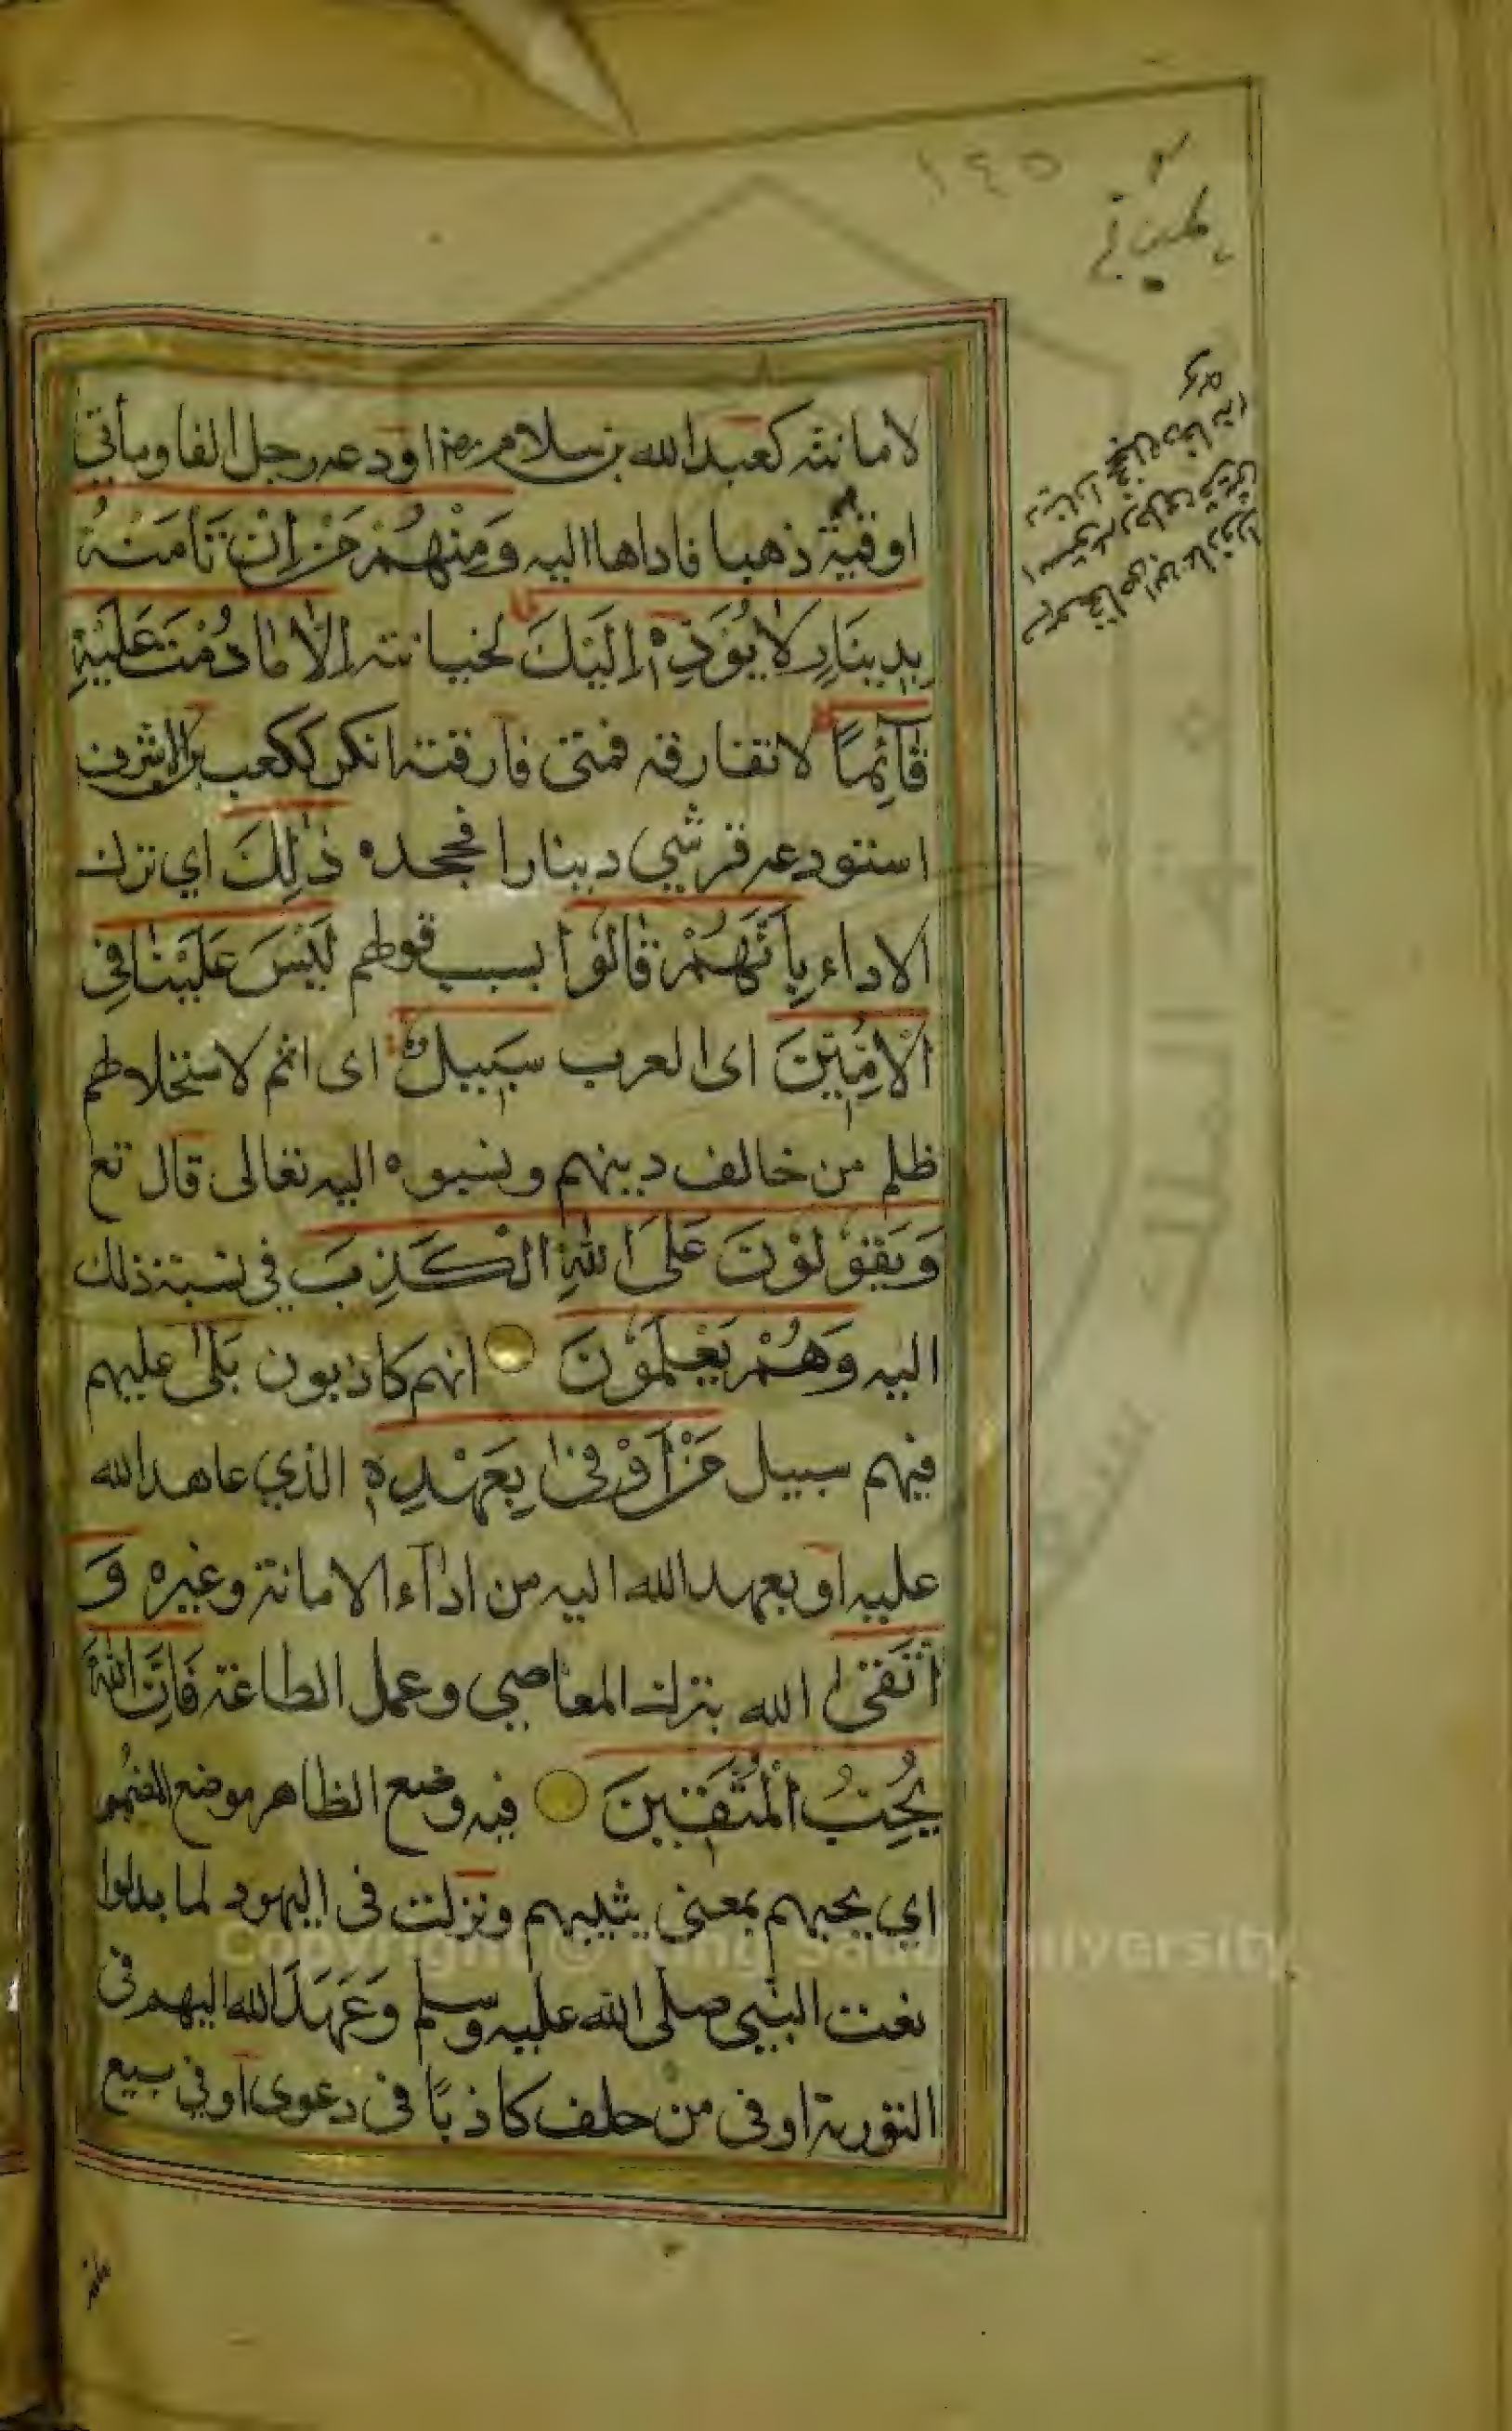 ١٤٥
لامانته كعبد الله بن سلام رض اودعه رجل الفا ومأتي
اوقية ذهبا فاداها اليه وَمِنْهُمْ مَنْ اِنْ تَأْمَنْهُ
بِدِينَارٍ لَا يُؤَدِّهِ اِلَيْكَ لخيانته اِلَّا مَا دُمْتَ عَلَيْهِ
قَآئِمًا لا تفارقه فمتى فارقته انكر ككعب بن الاشرف
استودعه قرشي دينارا فجحده ذٰلِكَ اي ترك
الاداء بِاَنَّهُمْ قَالُوْا بسبب قولهم لَيْسَ عَلَيْنَا فِي
الْاُمِّيّٖنَ اى العرب سَبِيلٌ اى اثم لاستحلالهم
ظلم من خالف دينهم ونسبوه اليه تعالى قال تع
وَيَقُوْلُوْنَ عَلَى اللّٰهِ الْكَذِبَ في نسبة ذلك
اليه وَهُمْ يَعْلَمُوْنَ انهم كاذبون بَلٰى عليهم
فيهم سبيل مَنْ اَوْفٰى بِعَهْدِهٖ الذي عاهد الله
عليه او بعهد الله اليه من ادآء الامانة وغيره وَ
اتَّقٰى الله بترك المعاصي وعمل الطاعة فَاِنَّ اللّٰهَ
يُحِبُّ الْمُتَّقٖينَ فيه وضع الظاهر موضع المضمر
اي يحبهم بمعنى يثيبهم ونزلت فى اليهود لما بدلوا
نعت النبي صلى الله عليه وسلم وَعَهَدَ الله اليهم فى
التورية او فى من حلف كاذبًا فى دعوى او في بيع
Copyright © King Saud University